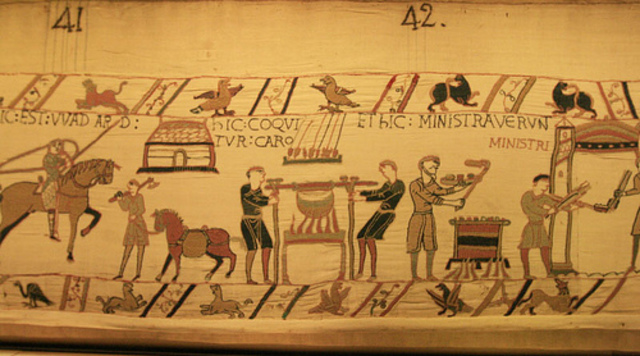 41
42.
IC:EST:VVAD ARD:
hIC:COQVI
TVR:CARO
ET hIC: MINISTRAVERVN
MINISTRI